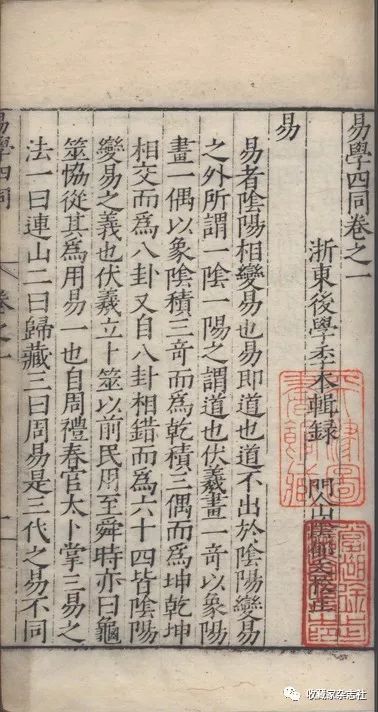 易學四同卷之一
浙東後學季本輯録 門人山陰
易
易者陰陽相變易也易即道也道不出於陰陽變易
之外所謂一陰一陽之謂道也伏羲畫一奇以象陽
畫一偶以象陰積三奇而爲乾積三偶而爲坤乾坤
相交而爲八卦又自八卦相錯而爲六十四皆陰陽
變易之義也伏羲立卜筮以前民用至舜時亦曰龜
筮恊從其爲用易一也自周禮春官太卜掌三易之
法一曰連山二曰歸藏三曰周易是三代之易不同
易學四同
卷之一
一
收藏家杂志社